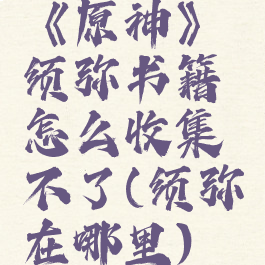 《原神》
须弥书籍
怎么收集
不了(须弥
在哪里)